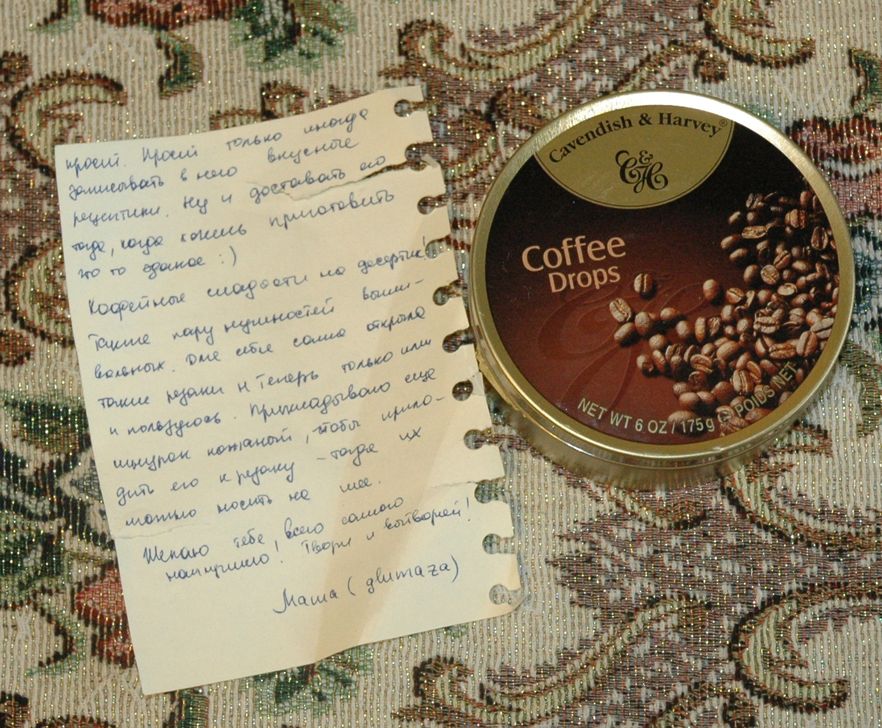 просит. Просит только иногда
записывать в него вкусные
рецептики. Ну и доставать его
тогда, когда хочешь приготовить
что то эдакое :)
Кофейные сладости на десертик!
Также пару нужностей выши-
вальных. Для себя сама открыла
такие резаки и теперь только ими
и пользуюсь. Прикладываю еще
шнурок кожаный, чтобы прила-
дить его к резаку - тогда их
можно носить на шее.
Желаю тебе, всего самого
наилучшего! Твори и вытворяй!
Маша (
Cavendish & Harvey®
C&H
Coffee
Drops
NET WT 6 OZ / 175g e POIDS NET